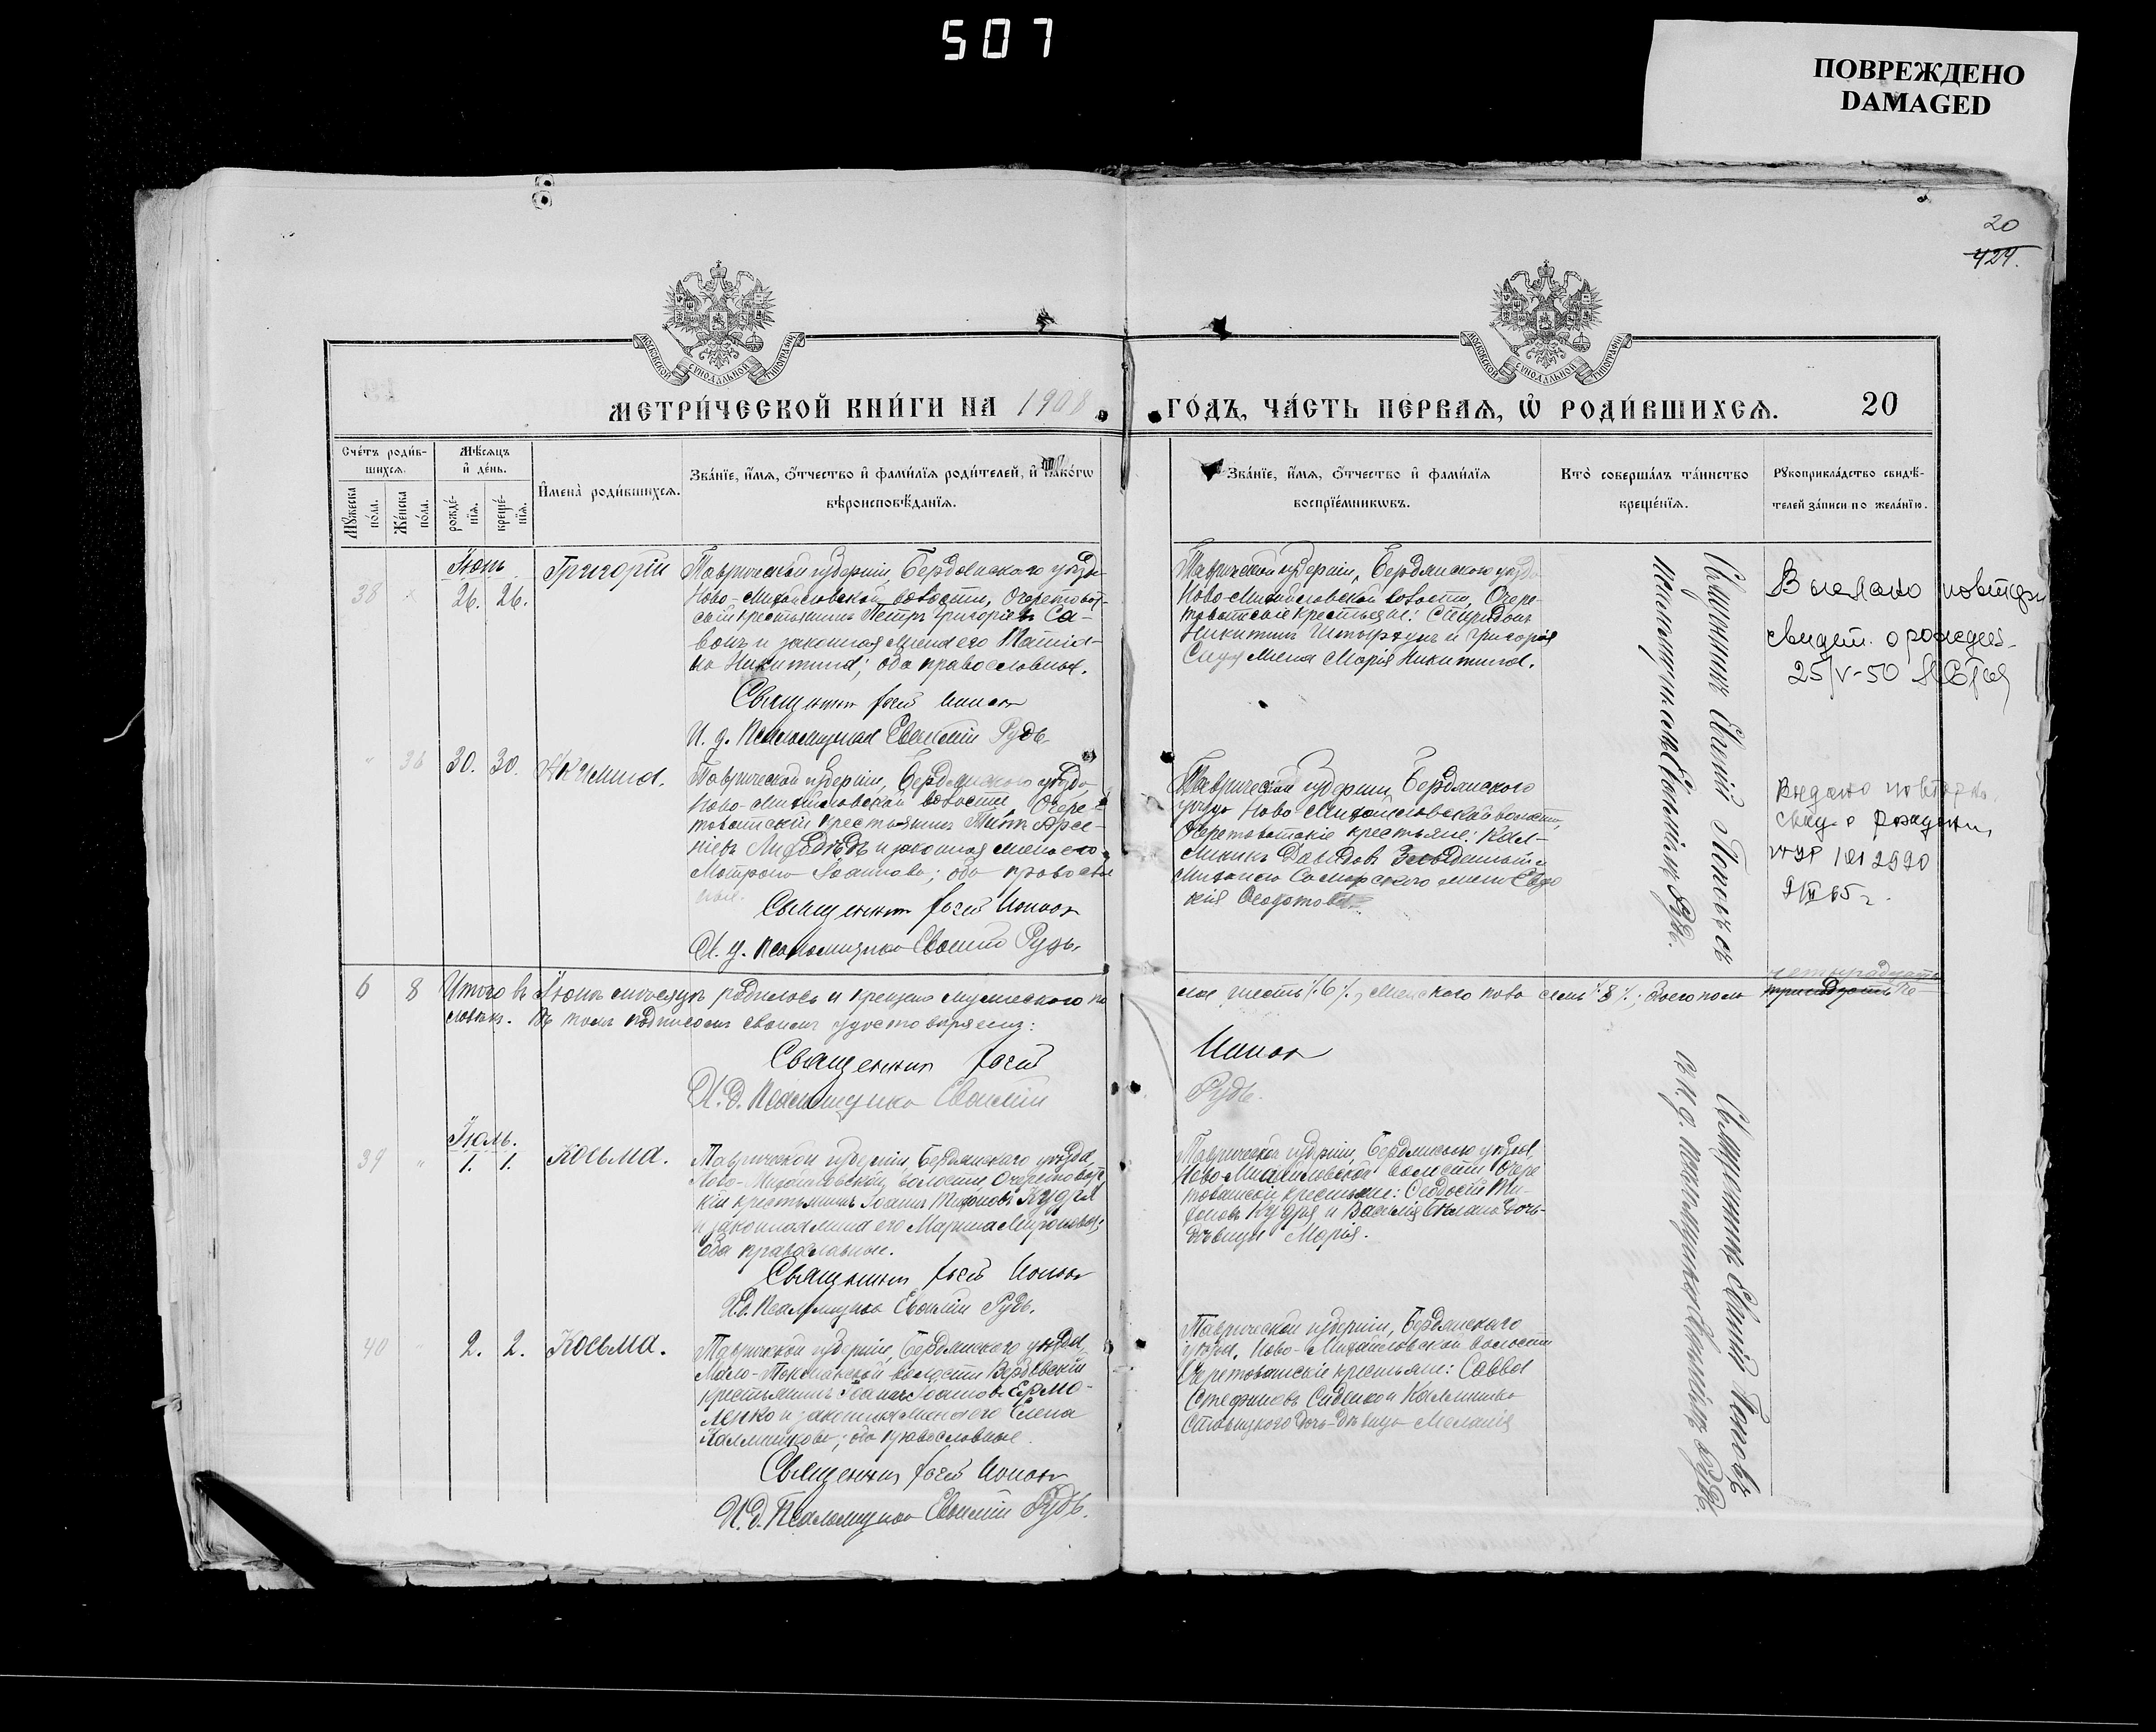 507
ПОВРЕЖДЕНО
DAMAGED
20
424.
МОСКОВСКОЙ СѴНОДАЛЬНОЙ ТИПОГРАФИИ
МОСКОВСКОЙ СѴНОДАЛЬНОЙ ТИПОГРАФИИ
МЕТРИ́ЧЕСКОЙ КНИ́ГИ НА 1908
ГО́ДЪ, ЧА́СТЬ ПЕ́РВАЯ, Ѡ҆ РОДИ́ВШИХСЯ. 20
Сче́тъ роди́в-
шихся.
Мꙋ́жеска по́ла.
Же́нска по́ла.
Мѣ́сяцъ
и҆ де́нь.
рожде́-
нїѧ.
креще́-
нїѧ.
И҆мена̀ роди́вшихсѧ.
Зва́нїе, и҆́мѧ, ѻ҆́тчество и҆ фами́лїѧ роди́телей, и҆ како́гѡ
вѣроисповѣ́данїѧ.
Зва́нїе, и҆́мѧ, ѻ҆́тчество и҆ фами́лїѧ
воспрїе́мникѡвъ.
Кто̀ соверша́лъ та́инство
креще́нїѧ.
Рꙋкоприкла́дство свидѣ́-
телей за́писи по жела́нїю.
Іюнь
38 26. 26. Григорій
Таврической губерніи, Бердянскаго уѣзда
Ново-Михайловской волости, Очеретоват-
скій крестьянинъ Петръ Григоріевъ Са-
вонъ и законная жена его Татіа-
на Никитина; оба православные.
Священник Попов
И. д. Псаломщика Евѳимій Рудь.
Таврической губерніи, Бердянскаго уѣзда
Ново-Михайловской волости, Очере-
товатскіе крестьяне: Спиридонъ
Никитинъ и Григорія
жена Марія Никитина.
Священникъ Попов съ
псаломщикомъ Евѳиміемъ Рудь.
Выдано повторн
свидет. о рожден
25/V-50
36 30. 30. Акилина.
Таврической губерніи, Бердянскаго уѣзда
Ново-Михайловской волости, Очере-
товатскій крестьянинъ Арсе-
ніевъ и законная жена его
Матрона Іоаннова; оба православ
ные.
Священник Попов
И. д. псаломщика Евѳимій Рудь.
Таврической губерніи, Бердянскаго
уѣзда Ново-Михайловской волости,
Очеретоватскіе крестьяне: Кал-
линикъ Давидовъ и
Михаила Самарскаго жена Евдо
кія Ѳеодотова.
Выдано повторно
свид. о рождении
2990
65 г.
6 8 Итого въ Іюнѣ мѣсяцѣ родилось и крещено мужескаго по
ловѣкъ. Въ томъ подписомъ своимъ удостовѣряемъ:
ла шесть /6/, женскаго пола семь /8/; обоего пола тринадцать че-
четырнадцать
Священник Попов
И. д. Псаломщика Евѳимій Рудь.
Іюль.
39 " 1. 1. Косьма.
Таврической губерніи, Бердянскаго уѣзда,
Ново-Михайловской волости, Очеретоватс-
кій крестьянинъ Іоаннъ Тихоновъ Кудря
и законная жена его Марина Миронова;
оба православные.
Священник Попов
И.д. Псаломщика Евѳимій Рудь.
Таврической губерніи, Бердянскаго уѣзда,
Ново-Михайловской волости Очере
товатскіе крестьяне: Ѳеодосій Ти-
хоновъ Кудря и Василія дочь-
дѣвица Марія.
Священникъ Попов
съ И. д. псаломщика Евѳиміемъ Рудь.
40 " 2. 2. Косьма.
Таврической губерніи, Бердянскаго уѣзда,
Мало-Токмакской волости
крестьянинъ Іоаннъ Іоанновъ Ермо-
ленко и законная жена его Елена
Каллиникова; оба православные.
Священник Попов
И. д. Псаломщика Евѳимій Рудь.
Таврической губерніи, Бердянскаго
уѣзда, Ново-Михайловской волости
Очеретоватскіе крестьяне: Савва
Стефановъ Сиденко и Каллиника
Ставицкаго дочь-дѣвица Меланія